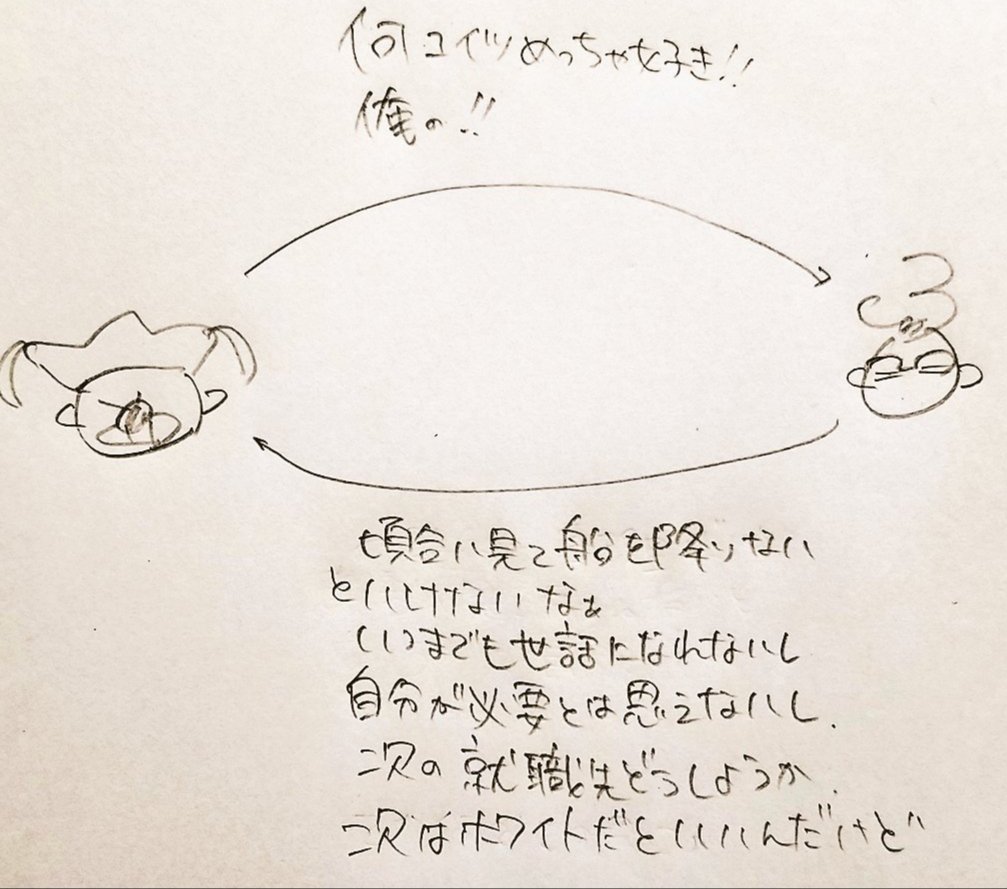 何コイツめっちゃ好き!!
俺の!!
頃合い見て船を降りない
といけないなぁ
いつまでも世話になれないし
自分が必要とは思えないし.
次の就職先どうしようか.
次はホワイトだといいんだけど